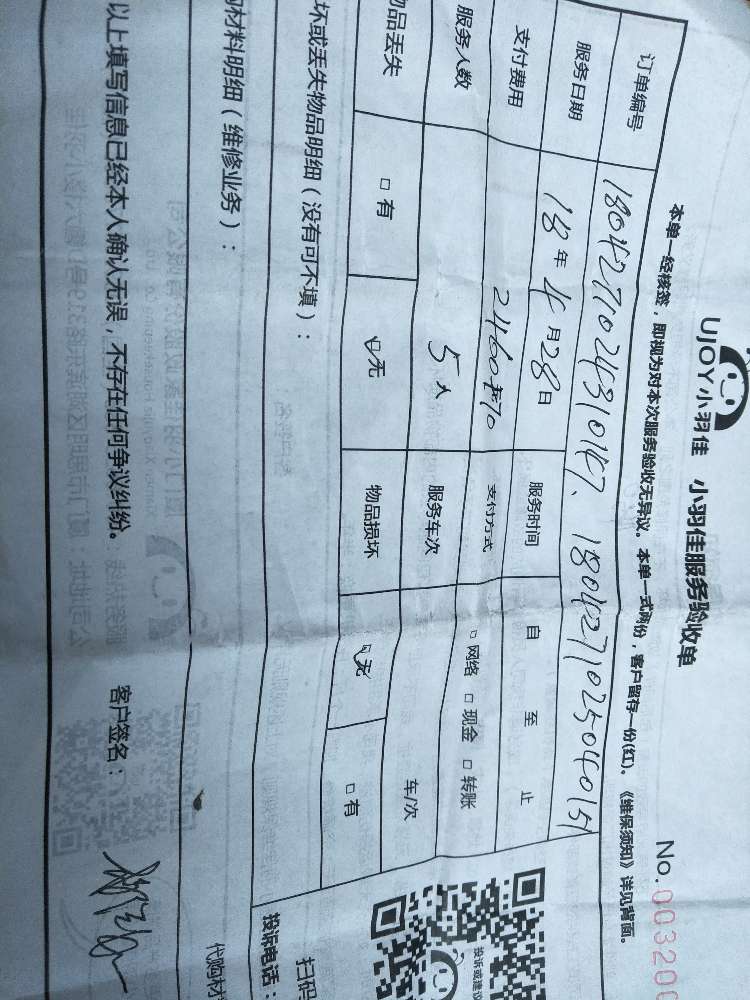 UJOY小羽佳 小羽佳服务验收单
No.003200
本单一经核签，即视为对本次服务验收无异议。本单一式两份，客户留存一份(红)。《维保须知》详见背面。
订单编号 1804271024310147、18042710250404151
服务日期 18年4月28日 服务时间 自 至 止
支付费用 支付方式 □网络 □现金 □转账
服务人数 5人 服务车次 车/次
物品丢失 □有 □无 物品损坏 □无 □有
坏或丢失物品明细（没有可不填）：
材料明细（维修业务）：
以上填写信息已经本人确认无误，不存在任何争议纠纷。 客户签名：
投诉或建议
扫码
投诉电话：
代购材